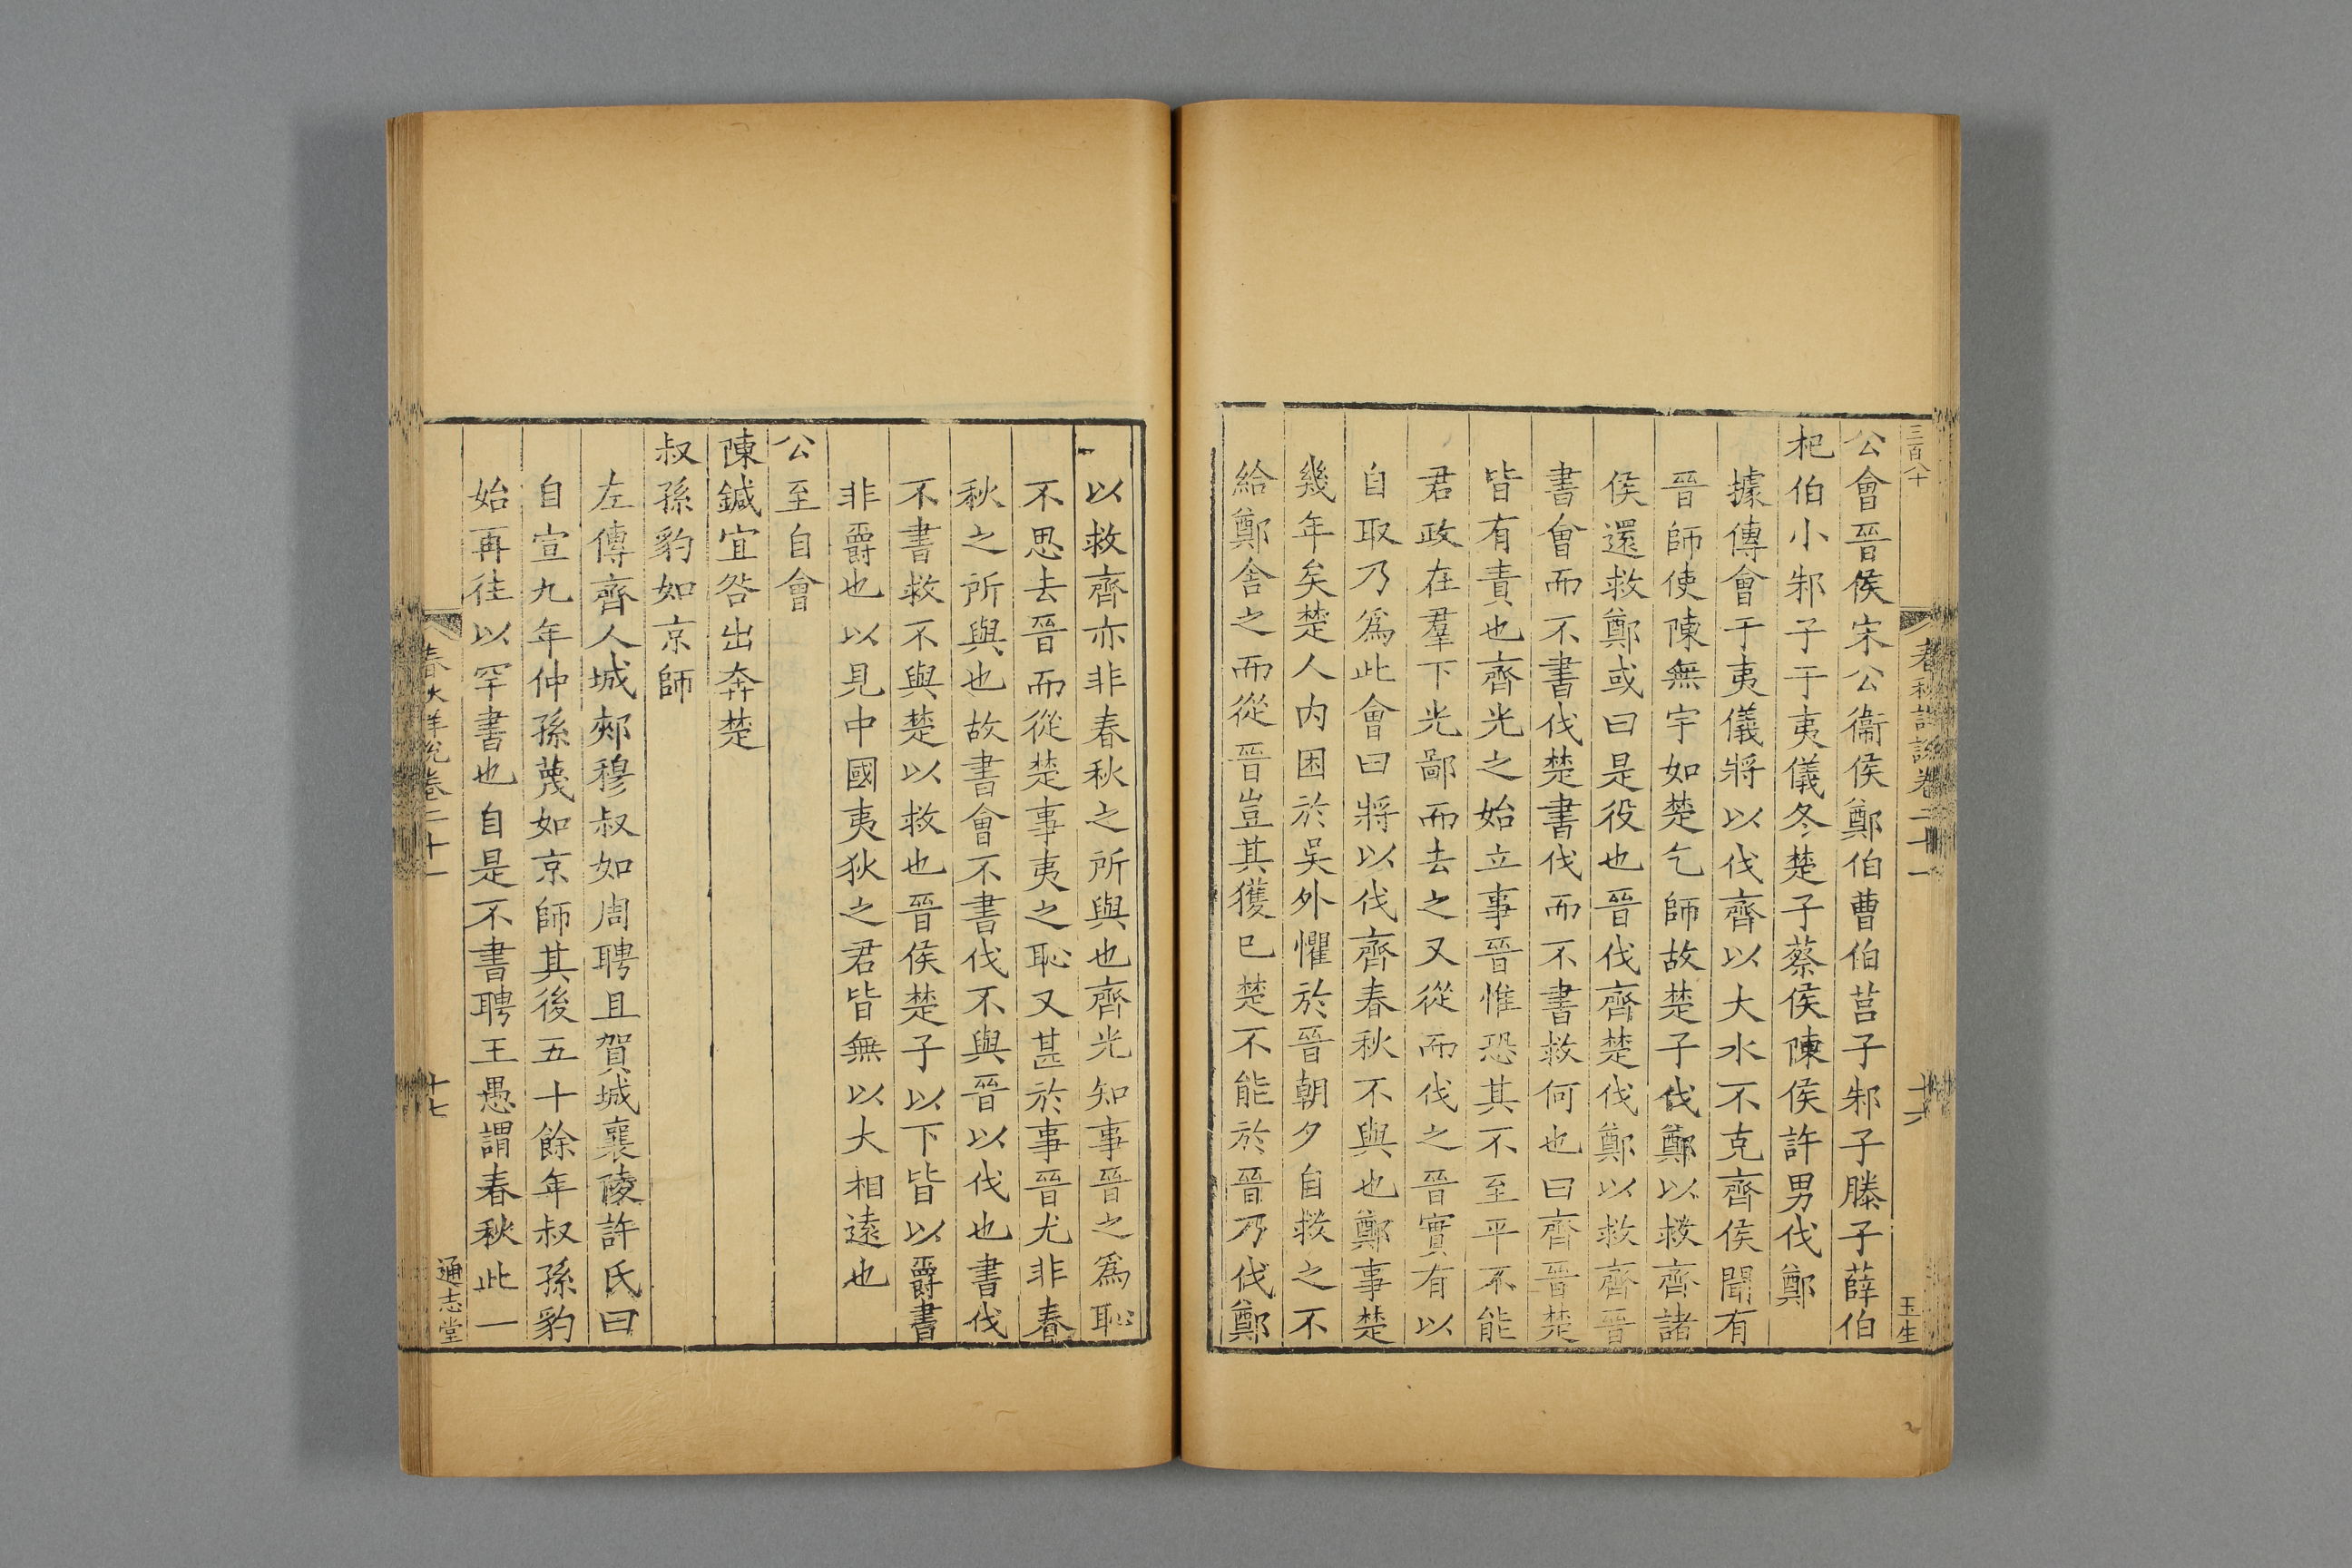 三百八十
春秋詳說卷二十一
十六
玉生
公會晉侯宋公衞侯鄭伯曹伯莒子邾子滕子薛伯
杞伯小邾子于夷儀冬楚子蔡侯陳侯許男伐鄭
據傳會于夷儀將以伐齊以大水不克齊侯聞有
晉師使陳無宇如楚乞師故楚子伐鄭以救齊諸
侯還救鄭或曰是役也晉伐齊楚伐鄭以救齊晉
書會而不書伐楚書伐而不書救何也曰齊晉楚
皆有責也齊光之始立事晉惟恐其不至平不能
君政在羣下光鄙而去之又從而伐之晉實有以
自取乃爲此會曰將以伐齊春秋不與也鄭事楚
幾年矣楚人内困於吳外懼於晉朝夕自救之不
給鄭舍之而從晉豈其獲已楚不能於晉乃伐鄭
以救齊亦非春秋之所與也齊光知事晉之爲恥
不思去晉而從楚事夷之恥又甚於事晉尤非春
秋之所與也故書會不書伐不與晉以伐也書伐
不書救不與楚以救也晉侯楚子以下皆以爵書
非爵也以見中國夷狄之君皆無以大相遠也
公至自會
陳鍼宜咎出奔楚
叔孫豹如京師
左傳齊人城郟穆叔如周聘且賀城襄陵許氏曰
自宣九年仲孫蔑如京師其後五十餘年叔孫豹
始再往以罕書也自是不書聘王愚謂春秋此一
春秋詳說卷二十一
十七
通志堂